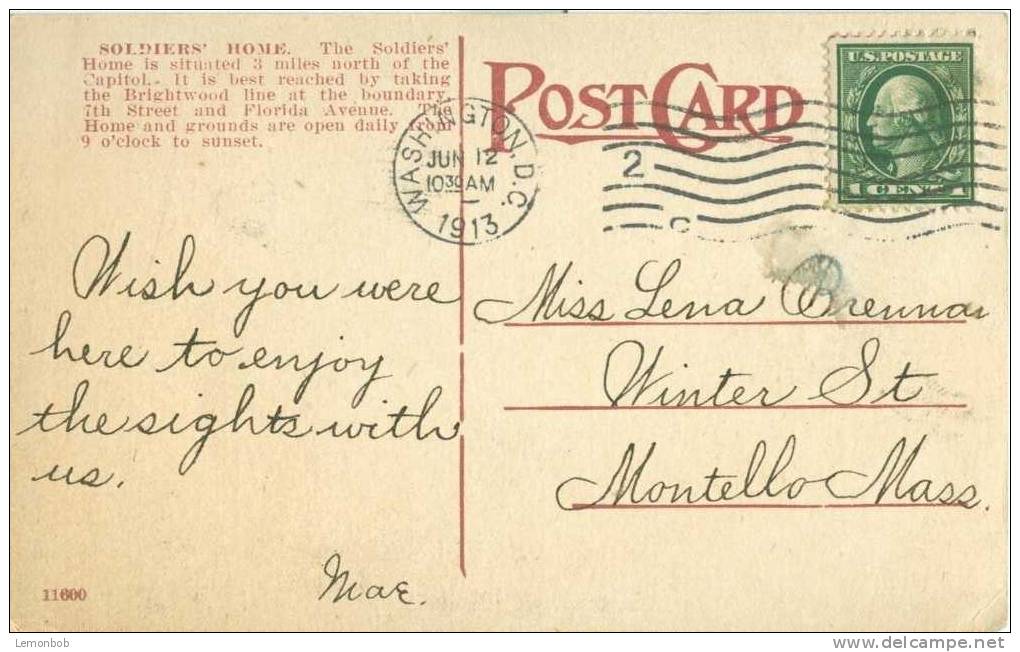 SOLDIERS' HOME. The Soldiers'
Home is situated 3 miles north of the
Capitol. It is best reached by taking
the Brightwood line at the boundary,
7th Street and Florida Avenue. The
Home and grounds are open daily from
9 o'clock to sunset.
POST CARD
U.S. POSTAGE
1 CENT 1
WASHINGTON, D.C.
JUN 12
10 30 AM
1913
2
C
Wish you were
here to enjoy
the sights with
us.
Mae.
Miss Lena Brennan
Winter St
Montello Mass.
11600
Lemonbob
www.delcampe.net